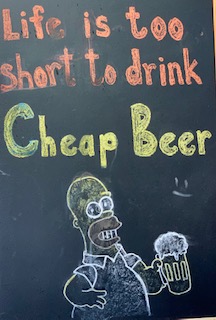 Life is too
short to drink
Cheap Beer